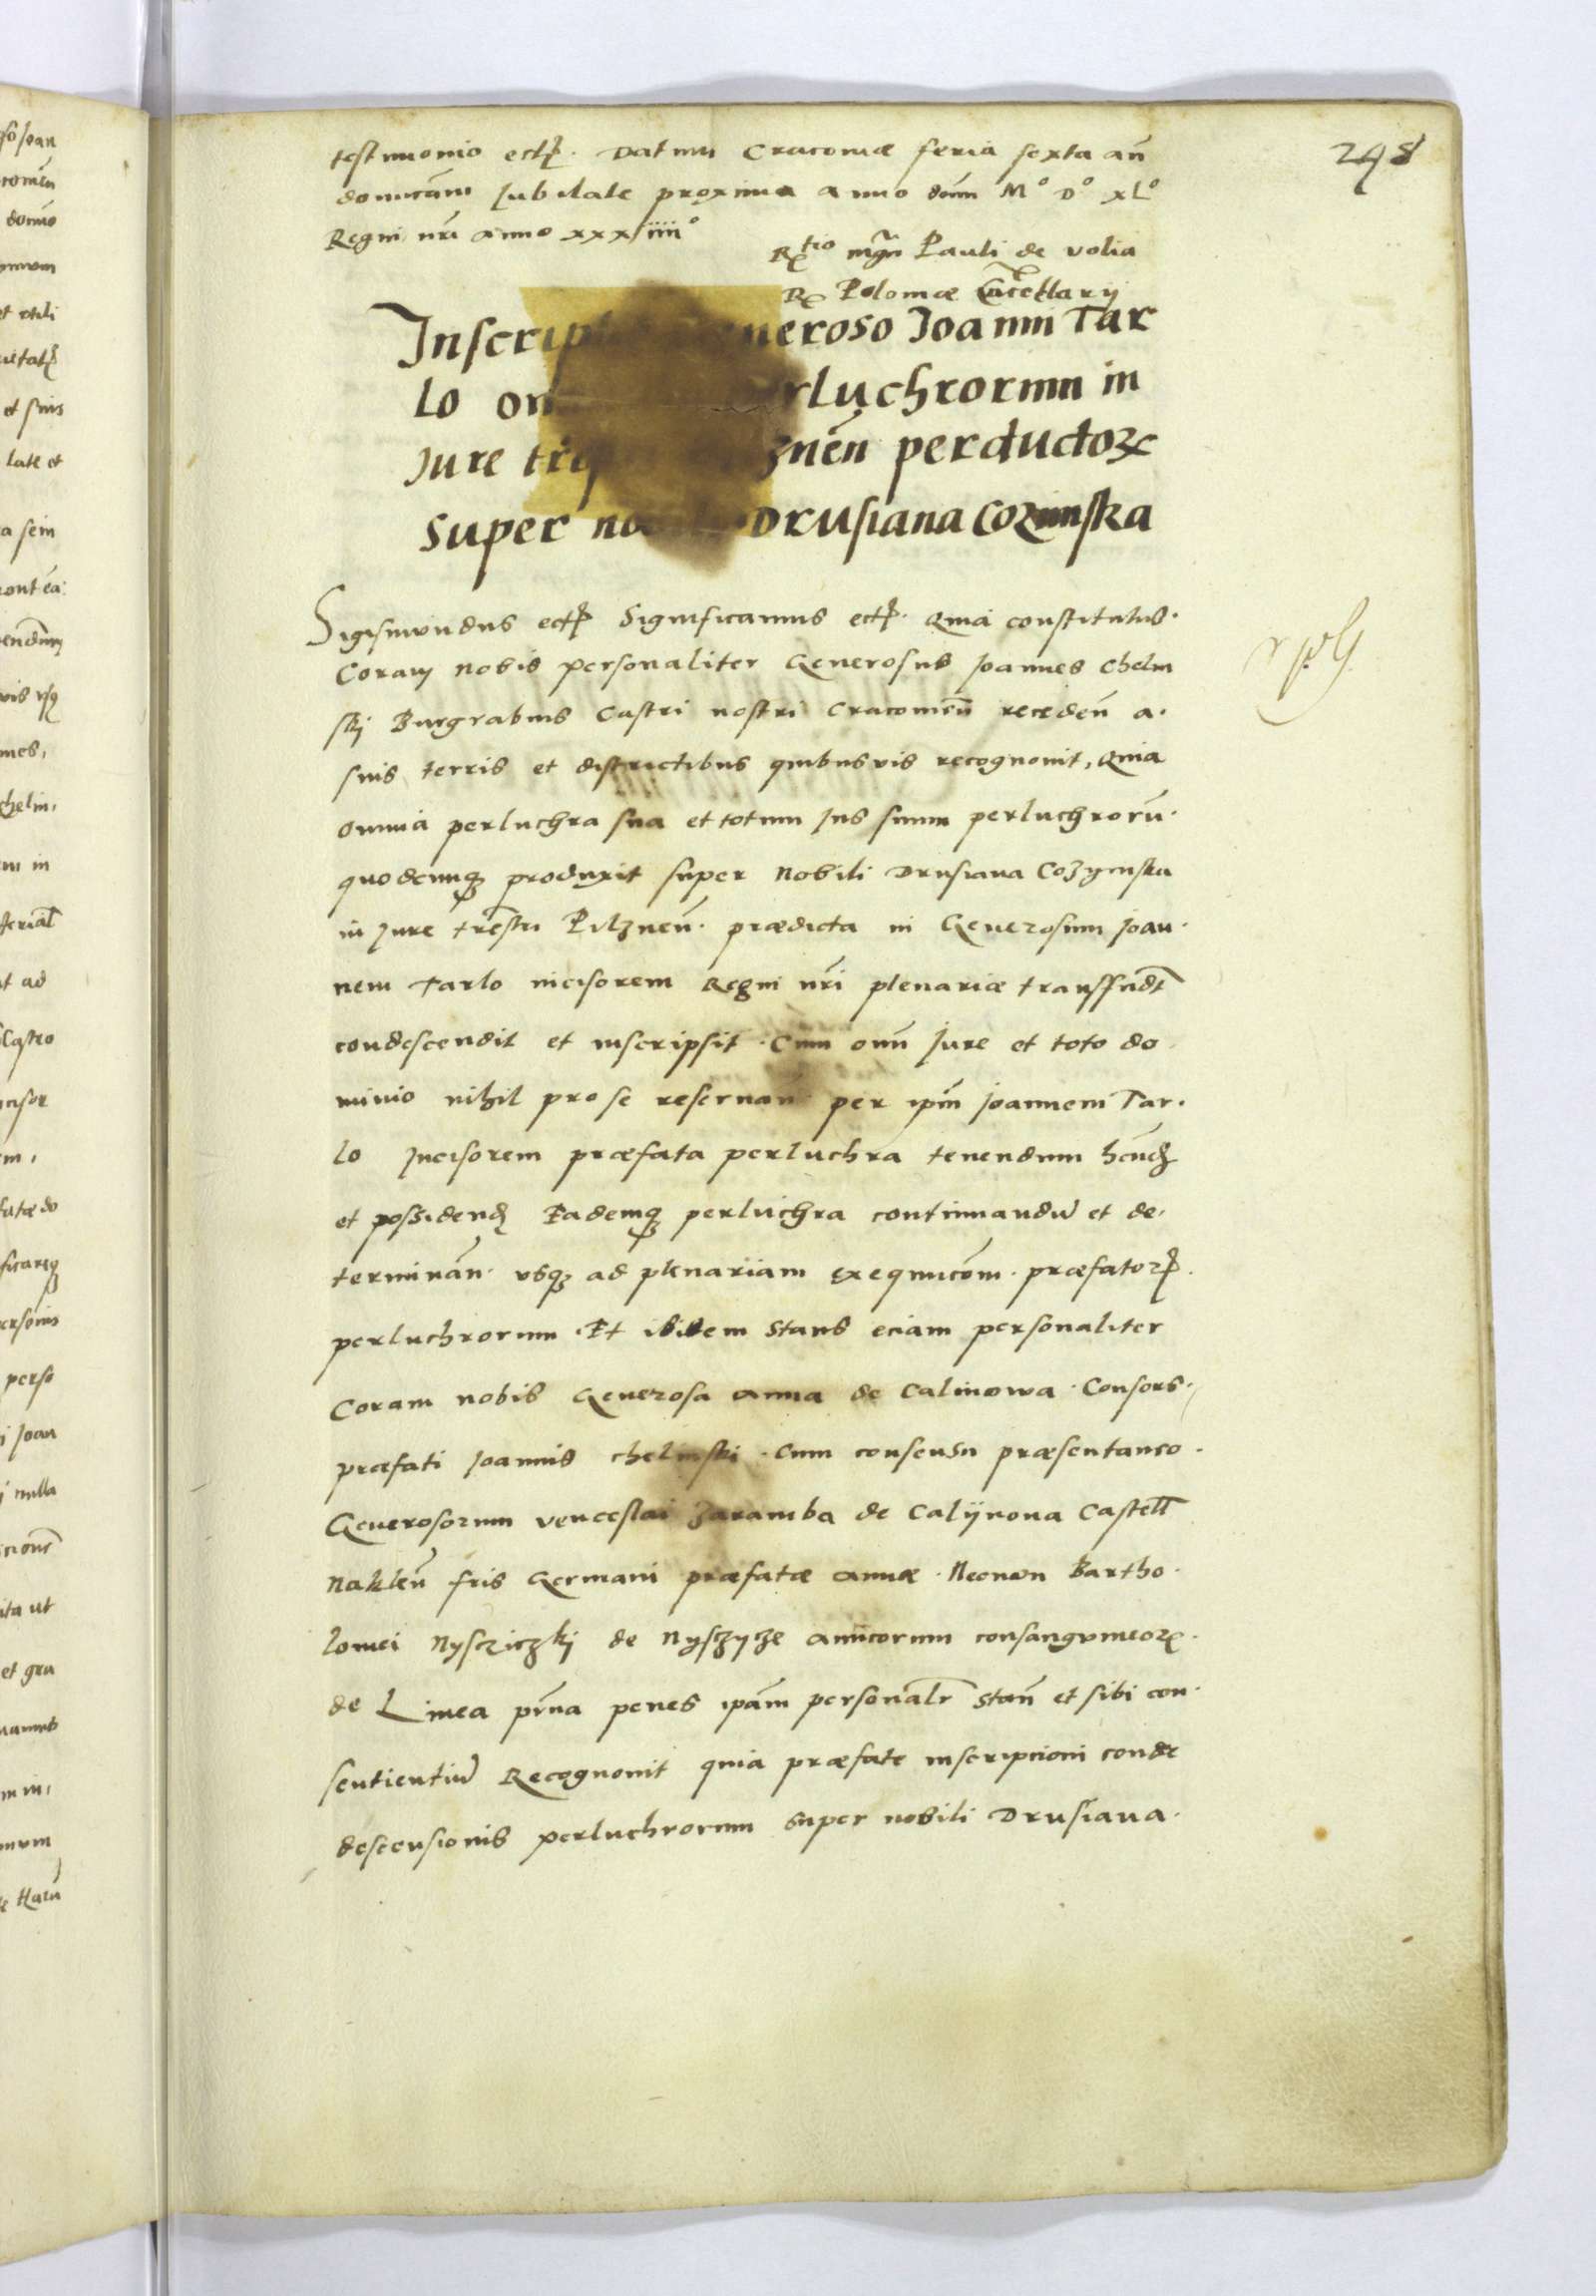 298
testimonio ectȝ. Datum Cracoviæ feria sexta añ
domicām Jubilate proxima anno dom̄ M° D° xL°
Regni nr̄i anno xxxiiii°
Rtio mgn̄ Pauli de volia
R. Poloniæ Cācellarij
Inscriptio generoso Joanni Tar
lo om rluchrorum in
Jure znēn perductorꝝ
super Drusiana Cozinska
Sigismundus ectȝ Significamus ectȝ. Quia constitutus.
Coram nobis personaliter Generosus Joannes Chelm
skj Burgrabius Castri nostri Cracovień receden̄ a.
suis terris et districtibus quibusvis recognovit, Quia
omnia perluchra sua et totum Jus suum perluchrorū.
quodcunqȝ produxit super Nobili Drusiana Cozynska
in Jure trestri Pilznen̄. prædicta in Generosum Joan.
nem Tarlo incisorem Regni nr̄i plenariæ transfudt̄
condescendit et inscripsit. Cum omn̄ Jure et toto do
minio nihil pro se reservan̄ per ipm̄ Joannem Tar.
lo Incisorem præfata perluchra tenendum hēndȝ
et possidendȝ Eademqȝ perluchra continuandū et de.
terminān. usqȝ ad plenariam exequucōm. præfatorȝ.
perluchrorum. Et ibidem stans eciam personaliter
Coram nobis Generosa Anna de Calinowa. Consors.
præfati Joannis Chelmski. Cum consensu præsentaneo.
Generosorum venceslai Zaramba de Calijnova Castell̄
Naklen̄ fris Germani præfatæ Annæ. Necnon Bartho.
lomei Nyscziczkj de Nysczycze amicorum consanguineorꝝ.
de Linea pr̄na penes ipām personalr̄ stan̄ et sibi con.
sentientiū Recognovit quia præfate inscripcioni conde
descensionis perluchrorum super nobili Drusiana.